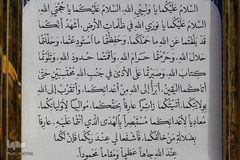 السَّلامُ عَلَيْكُما يا وَلِيَّيِ اللهِ، السَّلامُ عَلَيْكُما يا حُجَّتَيِ اللهِ،
السَّلامُ عَلَيْكُما يا نُورَيِ اللهِ في ظُلُماتِ الْأَرْضِ، أَشْهَدُ أَنَّكُما
قَدْ بَلَّغْتُما عَنِ اللهِ ما حَمَّلَكُما، وَحَفِظْتُما مَا اسْتُودِعْتُما، وَحَلَّلْتُما
حَلالَ اللهِ، وَحَرَّمْتُما حَرامَ اللهِ، وَأَقَمْتُما حُدُودَ اللهِ، وَتَلَوْتُما
كِتابَ اللهِ، وَصَبَرْتُما عَلَى الْأَذىٰ في جَنْبِ اللهِ مُحْتَسِبَيْنِ حَتّىٰ
أَتاكُمَا الْيَقينُ، أَبْرَأُ إِلَى اللهِ مِنْ أَعْدائِكُما، وَأَتَقَرَّبُ إِلَى اللهِ
بِوِلايَتِكُما، أَتَيْتُكُما زائِراً عارِفاً بِحَقِّكُما، مُوالِياً لِأَوْلِيائِكُما،
مُعادِياً لِأَعْدائِكُما، مُسْتَبْصِراً بِالْهُدَى الَّذي أَنْتُما عَلَيْهِ، عارِفاً
بِضَلالَةِ مَنْ خالَفَكُما، فَاشْفَعا لي عِنْدَ رَبِّكُما فَإِنَّ لَكُما
عِنْدَ اللهِ جاهاً عَظيماً وَمَقاماً مَحْمُوداً.